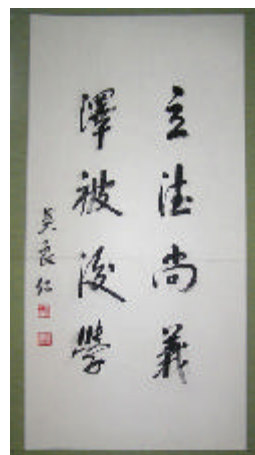 立德尚義
澤被後學
吳良仁